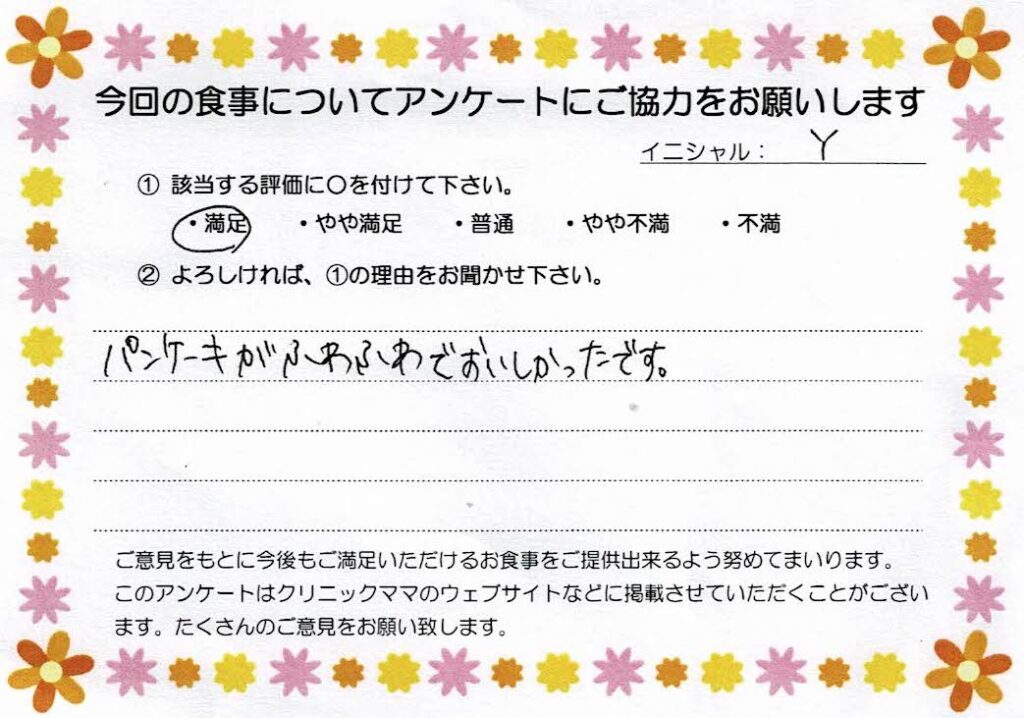 今回の食事についてアンケートにご協力をお願いします
イニシャル： Y
① 該当する評価に〇を付けて下さい。
・満足 ・やや満足 ・普通 ・やや不満 ・不満
② よろしければ、①の理由をお聞かせ下さい。
パンケーキがふわふわでおいしかったです。
ご意見をもとに今後もご満足いただけるお食事をご提供出来るよう努めてまいります。
このアンケートはクリニックママのウェブサイトなどに掲載させていただくことがござい
ます。たくさんのご意見をお願い致します。